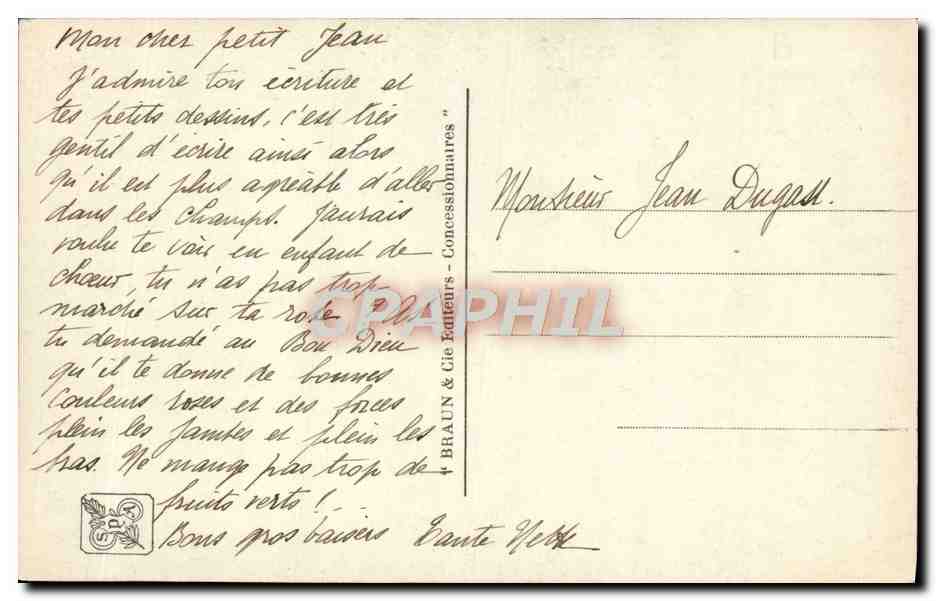 Mon cher petit Jean
J'admire ton écriture et
tes petits dessins, c'est très
gentil d'écrire ainsi alors
qu'il est plus agréable d'aller
dans les champs. J'aurais
voulu te voir en enfant de
chœur, tu n'as pas trop
marché sur ta robe
tu demandé au Bon Dieu
qu'il te donne de bonnes
couleurs roses et des forces
plein les jambes et plein les
bras. Ne mange pas trop de
fruits verts !...
Bons gros baisers Tante
" BRAUN & Cie Editeurs - Concessionnaires "
Monsieur Jean
CPAPHIL
SPA